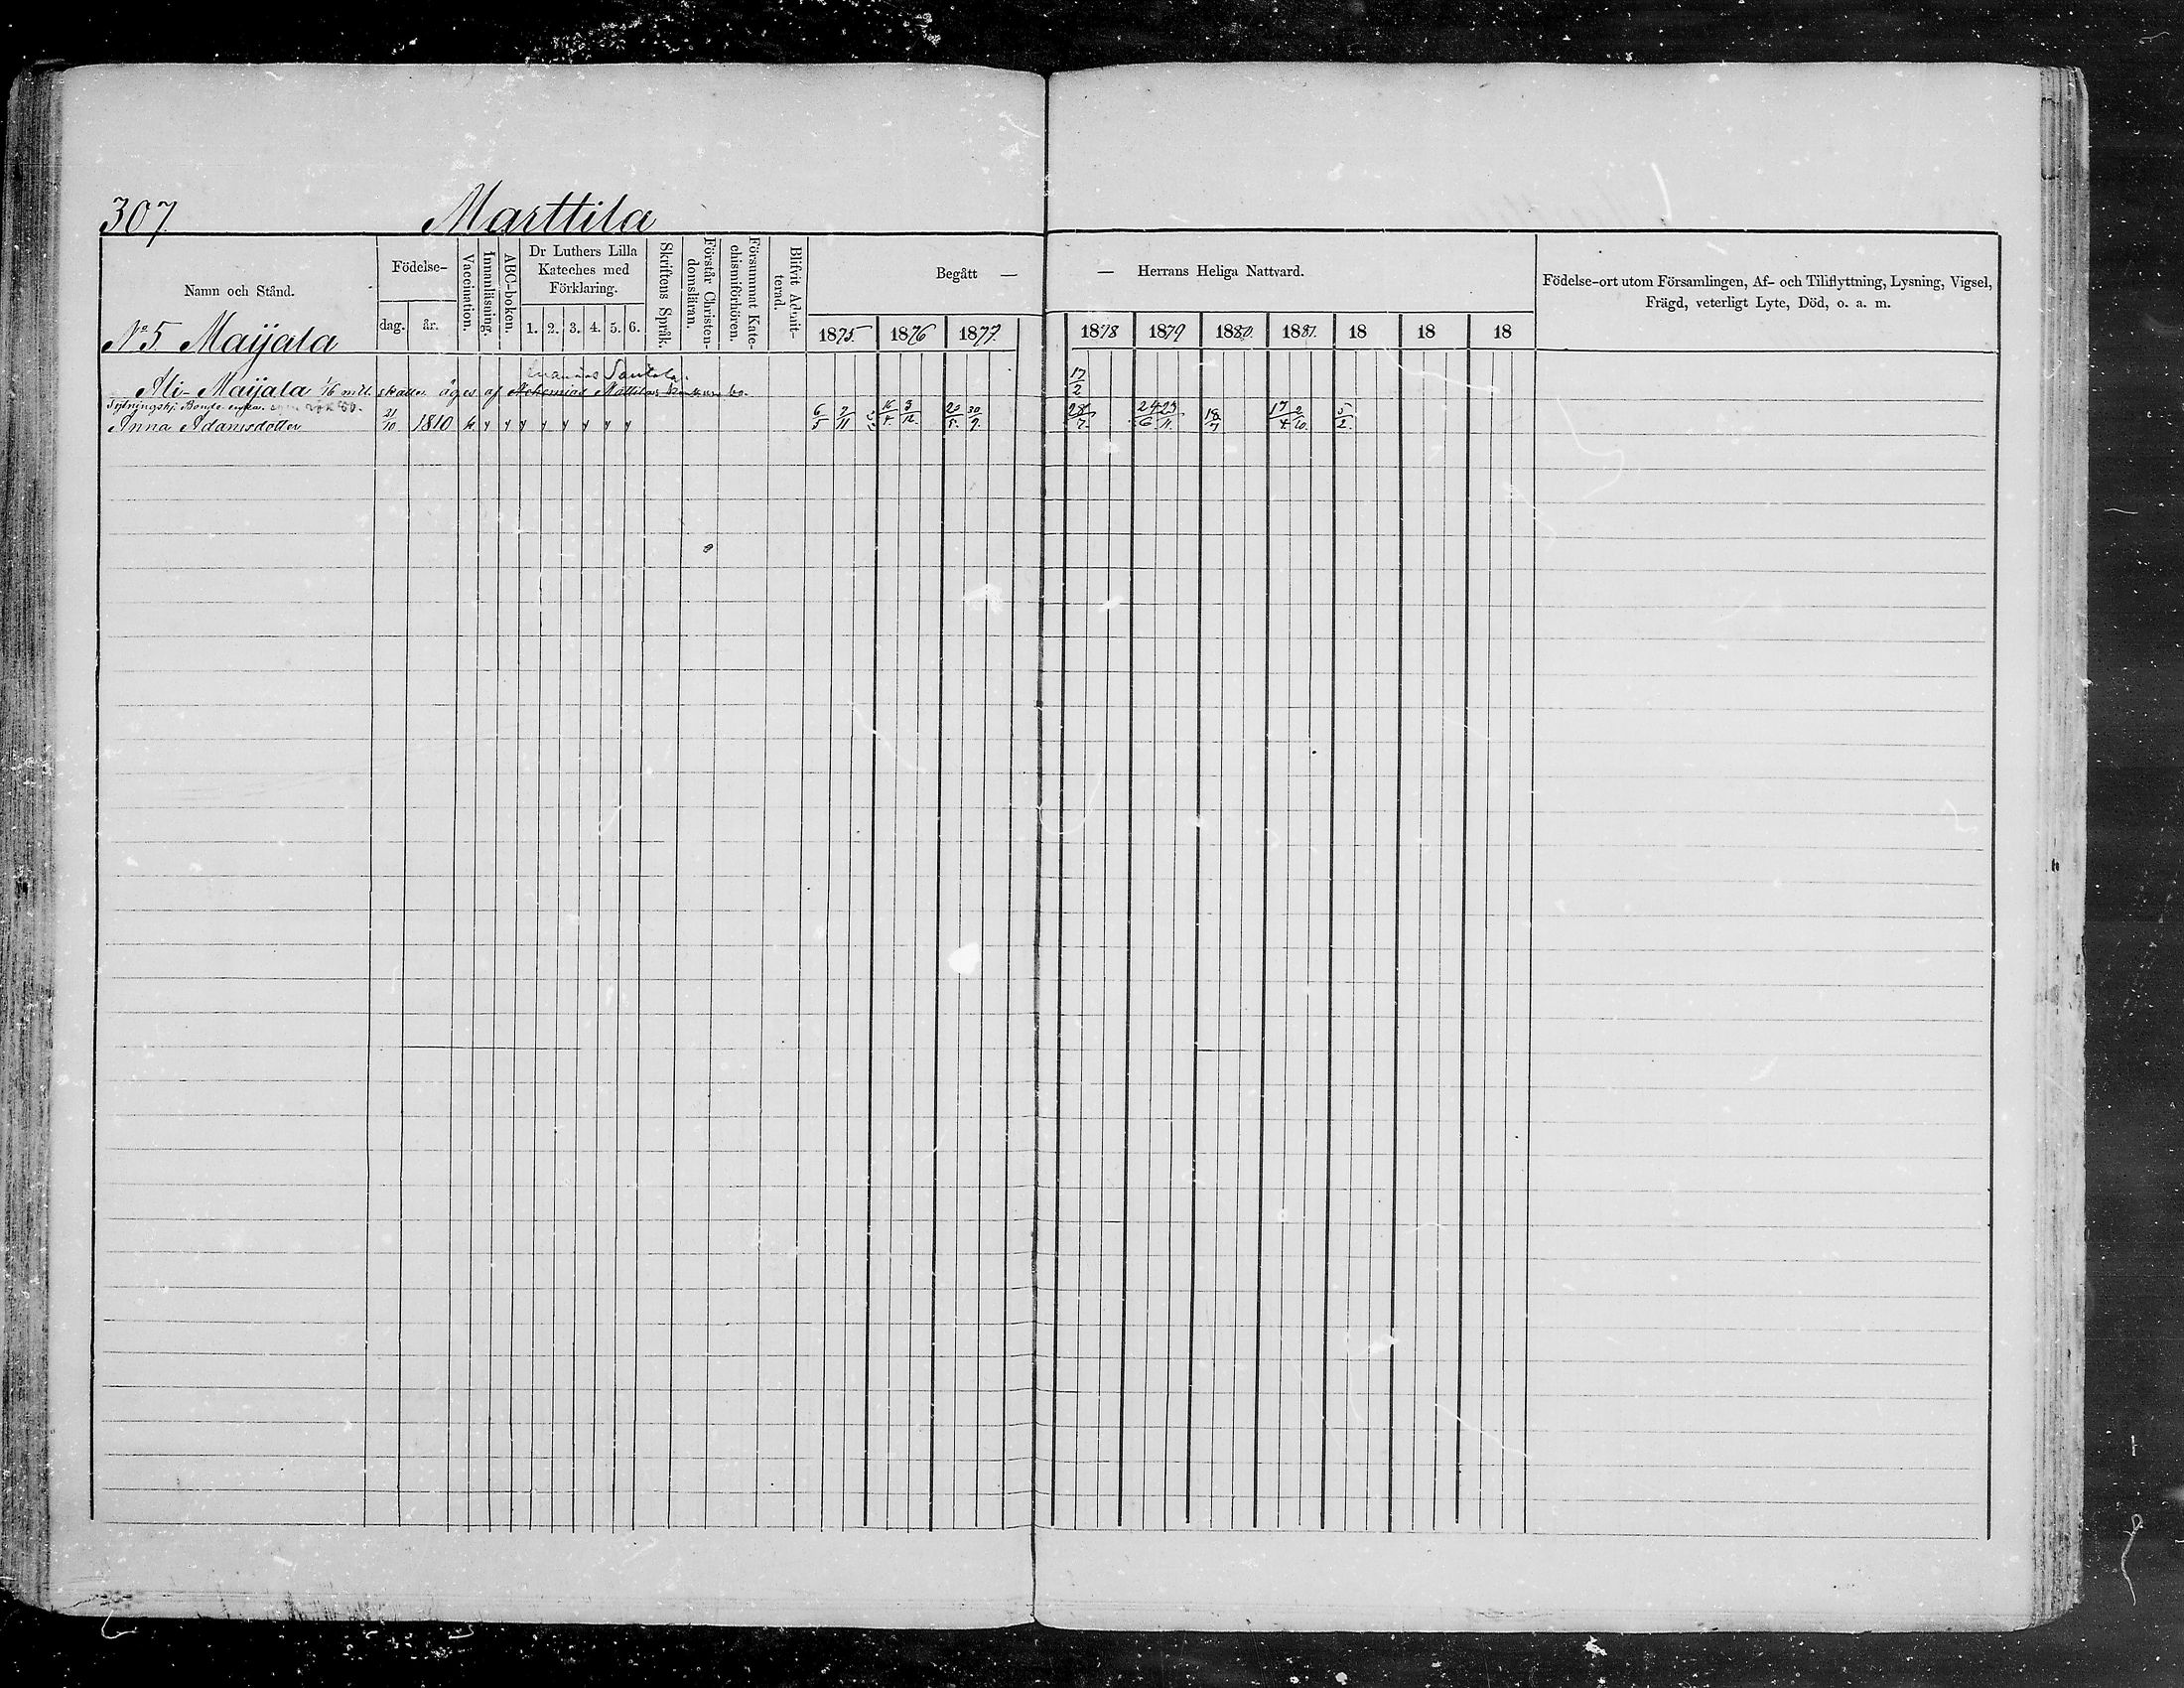 307.
Marttila
Namn och Stånd.
Födelse-
dag.
år.
Vaccination.
Innanläsning.
ABC-boken.
Dr Luthers Lilla
Kateches med
Förklaring.
1. 2. 3. 4. 5. 6.
Skriftens Språk.
Förstår Christen-
domsläran.
Försummat Kate-
chismiförhören.
Blifvit Admit-
terad.
Begått — — Herrans Heliga Nattvard.
1875. 1876 1877. 1878 1879 1880. 1881. 18 18 18
Födelse-ort utom Församlingen, Af- och Tillflyttning, Lysning, Vigsel,
Frägd, veterligt Lyte, Död, o. a. m.
No 5. Maijala
Santala.
Ali-Maijala 1/16 mtl. skatte, äges af Nehemias Mattila
17/2
Sytningshj. Bonde enkan
Anna Adamsdotter 21/10 1810 6/5 7/11 3/12 20/5 30/9 28/7 24/6 23/11 18/7 17/4 2/10 5/2